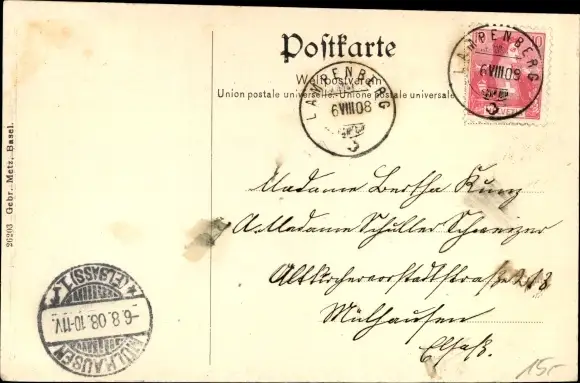 Postkarte
Weltpostverein
Union postale universelle. Unione postale universale
LAMPENBERG
6 VIII 08
LAMPENBERG
6 VIII 08
10
HELVETIA
26203 Gebr. Metz, Basel.
Madame Bertha Kunz
A. Madame Schüller Schweizer
Altkirchervorstadtstraße 213
Mülhausen
Elsaß.
MÜLHAUSEN
-6.8.08.10-11V.
(ELSASS) 1
15.-